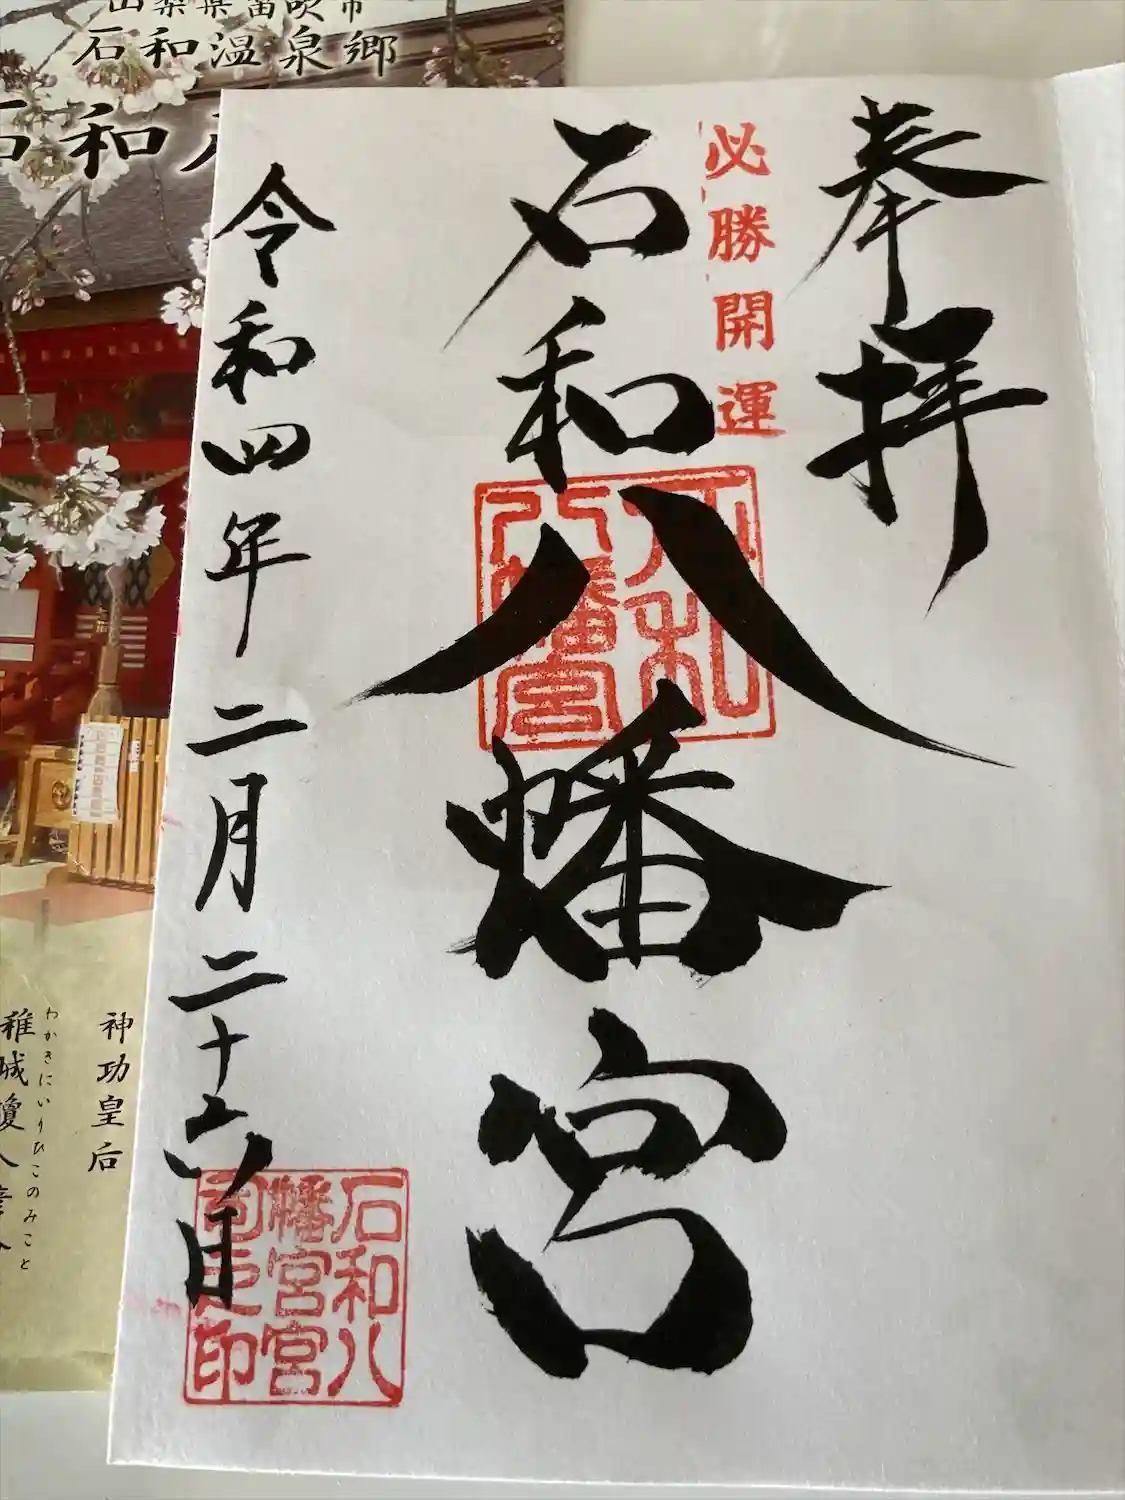 奉拝
必勝開運
石和八幡宮
石和八幡宮
令和四年二月二十六日
石和八幡宮宮司之印
山梨県笛吹市
石和温泉郷
石和
神功皇后
わかきにいりひこのみこと
稚城瓊入彦命